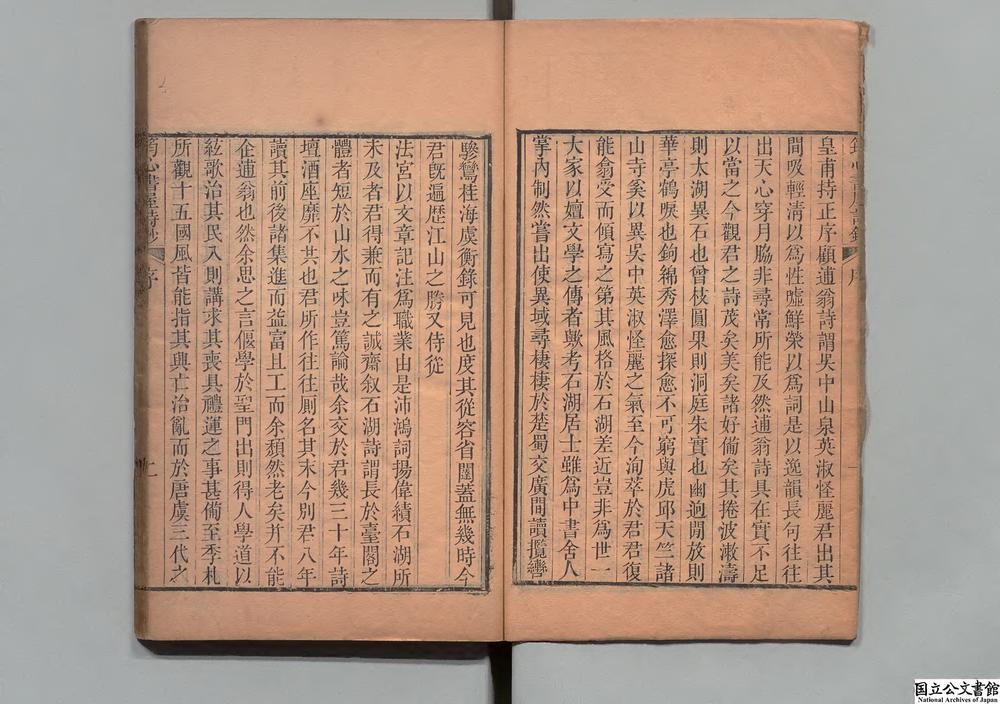 皇甫持正序顧逋翁詩謂吳中山泉英淑怪麗君出其
間吸輕清以爲性噓鮮榮以爲詞是以逸韻長句往往
出天心穿月脇非尋常所能及然逋翁詩具在實不足
以當之今觀君之詩茂矣美矣諸好備矣其捲波漱濤
則太湖異石也曾枝圓果則洞庭朱實也幽逈閒放則
華亭鶴唳也鉤綿秀澤愈探愈不可窮與虎邱天竺諸
山寺奚以異吳中英淑怪麗之氣至今洵萃於君君復
能翕受而傾寫之第其風格於石湖差近豈非爲世一
大家以嬗文學之傳者歟考石湖居士雖爲中書舍人
掌內制然嘗出使異域尋棲棲於楚蜀交廣間讀攬轡
驂鸞桂海虞衡錄可見也度其從容省闥蓋無幾時今
君旣遍歷江山之勝又侍從
法宮以文章記注爲職業由是沛鴻詞揚偉績石湖所
未及者君得兼而有之誠齋叙石湖詩謂長於臺閣之
體者短於山水之味豈篤論哉余交於君幾三十年詩
壇酒座靡不共也君所作往往厠名其末今別君八年
讀其前後諸集進而益富且工而余頹然老矣幷不能
企逋翁也然余思之言偃學於聖門出則得人學道以
絃歌治其民入則講求其喪具禮運之事甚備至季札
所觀十五國風皆能指其興亡治亂而於唐虞三代之
心書屋詩鈔
序
二
国立公文書館
National Archives of Japan